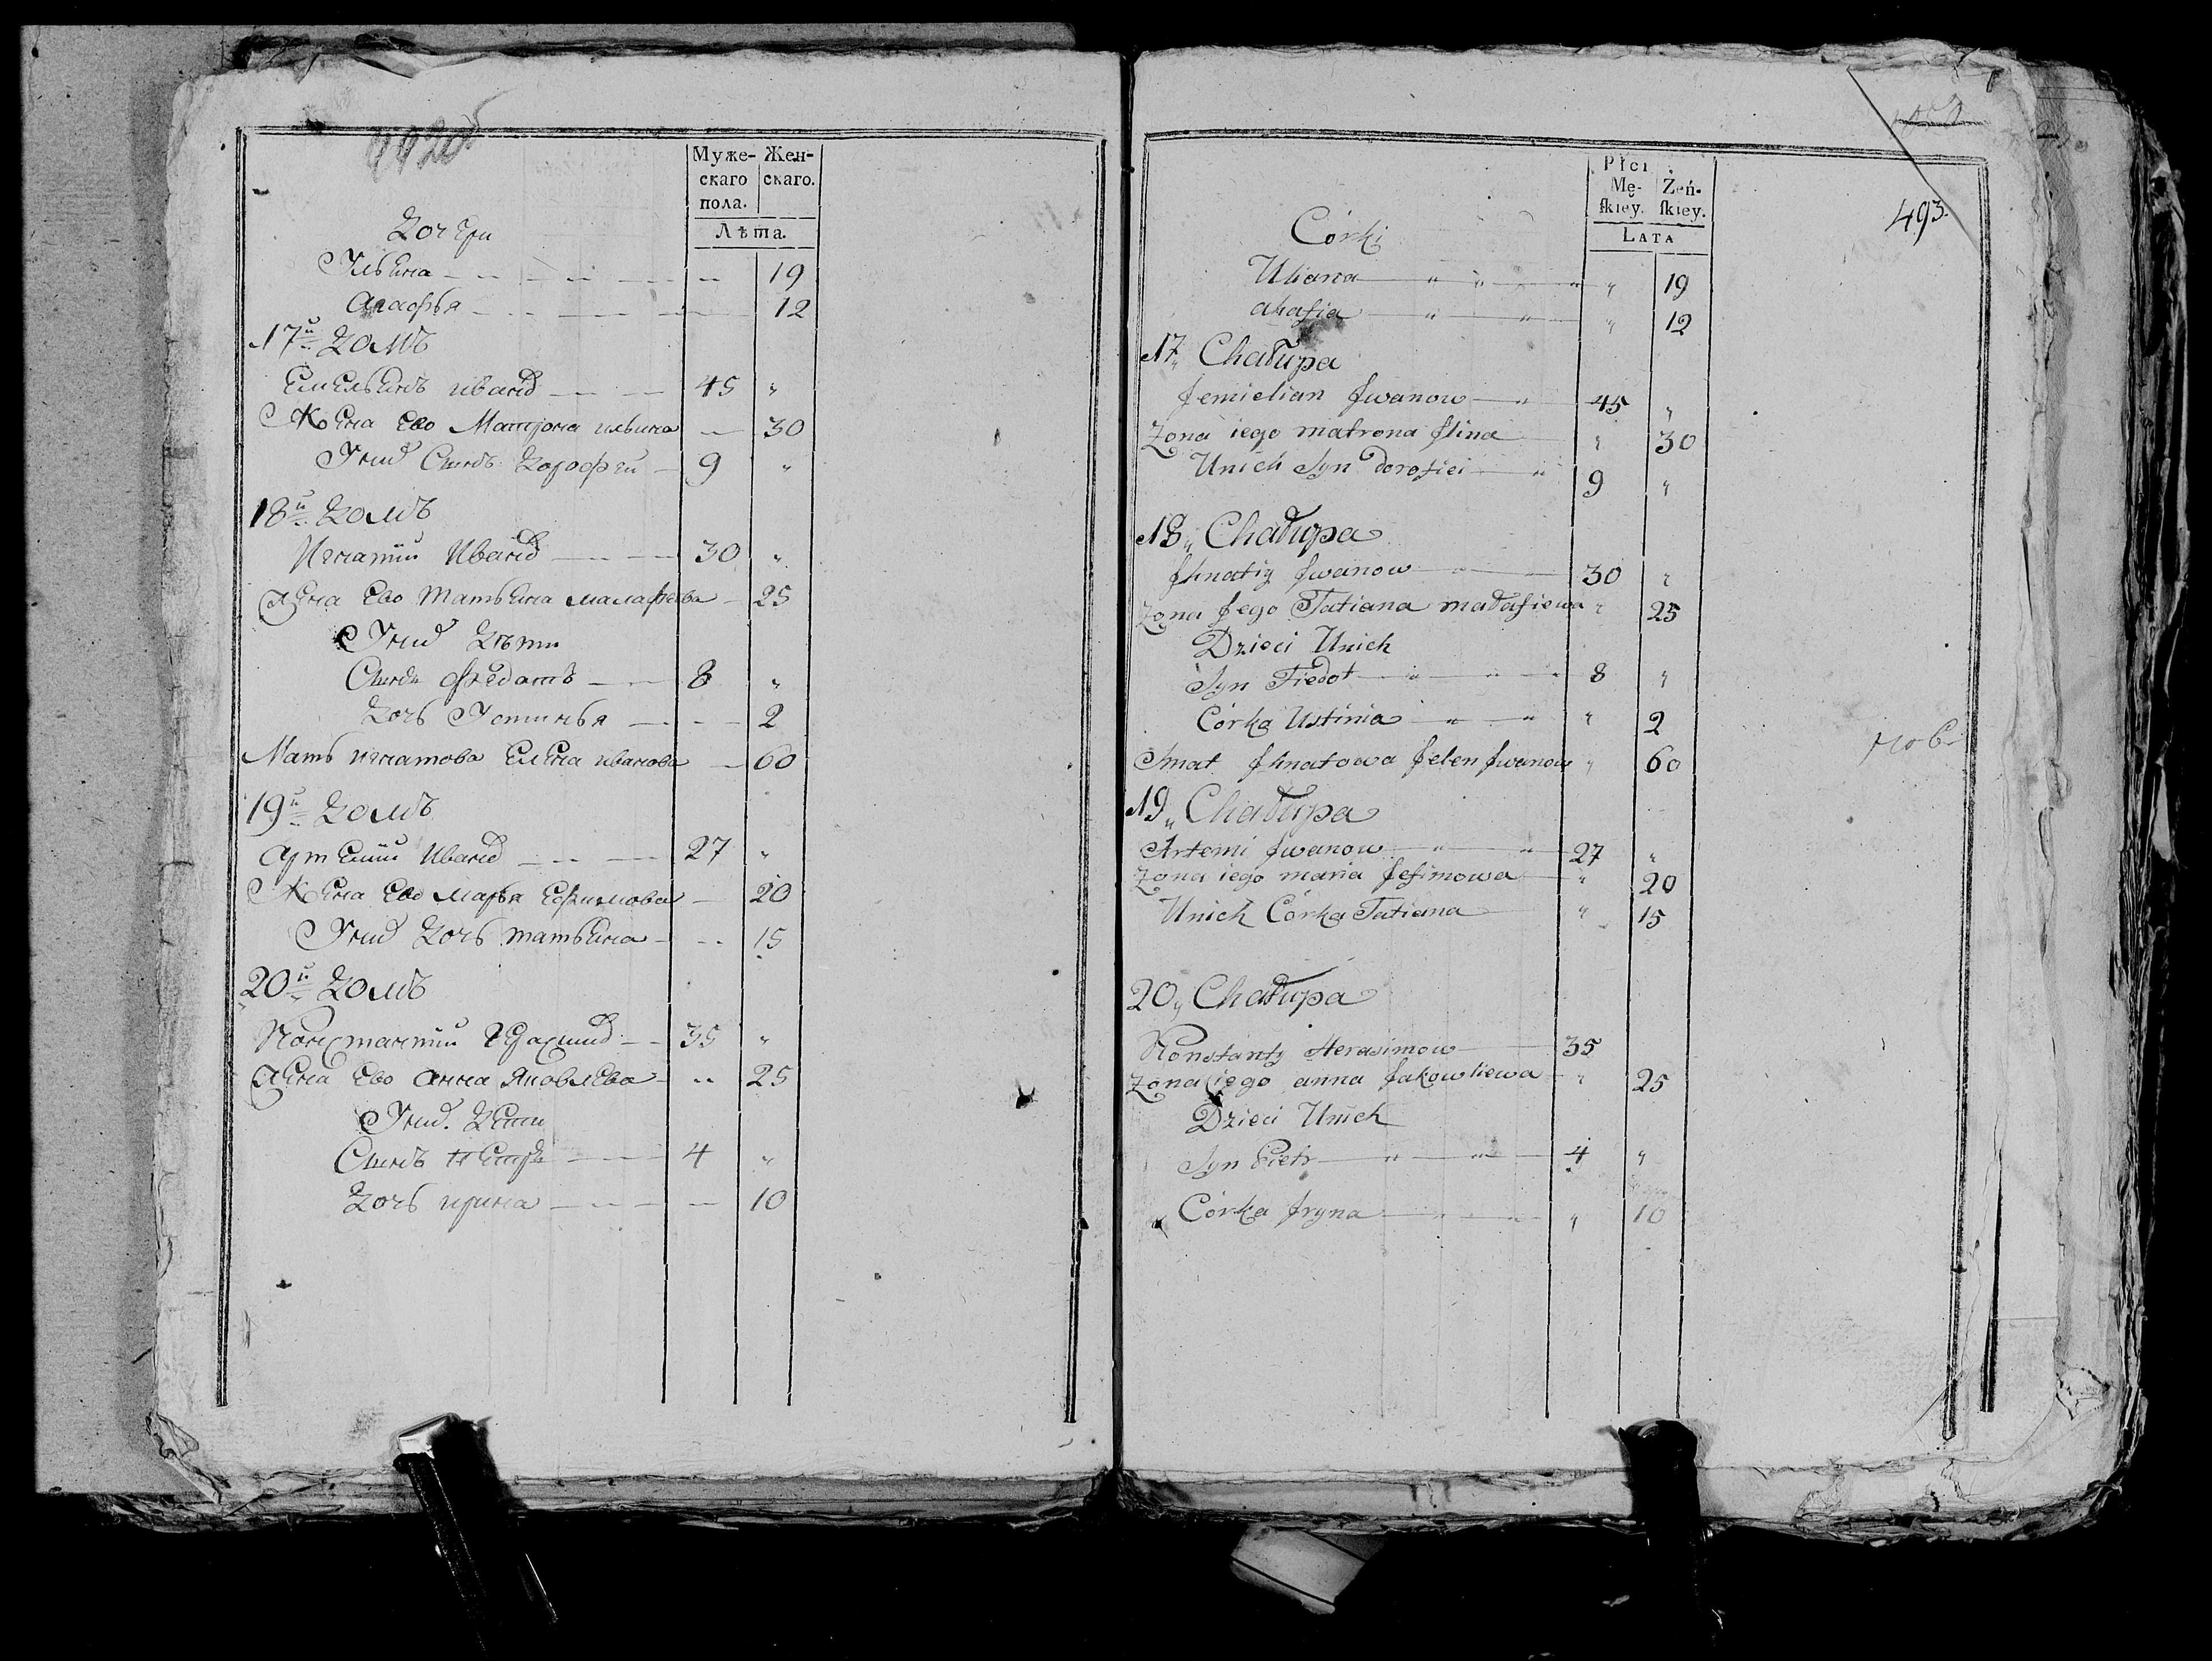 492об
Муже- Жен-
скаго скаго.
пола.
Лѣта.
Дочери
Ульена 19
Агафья 12
17й Домъ
Емельенъ иванв 45 "
Жена Ево Матрона ильина 30
Унив Сынъ Дорофеи 9 "
18й Домъ
Игнатии Иванв 30 "
Жена Ево татьена малафеева 25
Унив Дѣти
Сынъ Федатъ 8 "
Дочь Устинья 2
Мать игнатова Елена иванова 60
19й Домъ
Артемии Иванв 27 "
Жена Ево марья Ефимова 20
Унив Дочь татьена 15
20й Домъ
Константии Герасимв 35 "
Жена Ево анна Яковлева 25
Унив Дети
Сынъ Петръ 4 "
Дочь ирина 10
Płci
Mę- Żeń-
ſkiey. ſkiey.
LATA
493.
Córki
Uliana " 19
ahafia " 12
17 Chałupa
Jemielian Jwanow 45 "
Zona iego matrona Jlina " 30
Unich Syn dorofiei 9 "
18 Chałupa
Jhnatiy Jwanow 30 "
Zona Jego Tatiana małafiewa " 25
Dzieci Unich
Syn Fiedot 8 "
Córka Ustinia " 2
Jhnatowa Jelen Jwanow " 60
19 Chałupa
Artemi Jwanow 27 "
Zona iego maria Jefimowa " 20
Unich Córka Tatiana " 15
20 Chałupa
Konstanty Herasimow 35
Zona iego anna Jakowliewa " 25
Dzieci Unich
Syn Pietr 4 "
Córka Jryna " 10